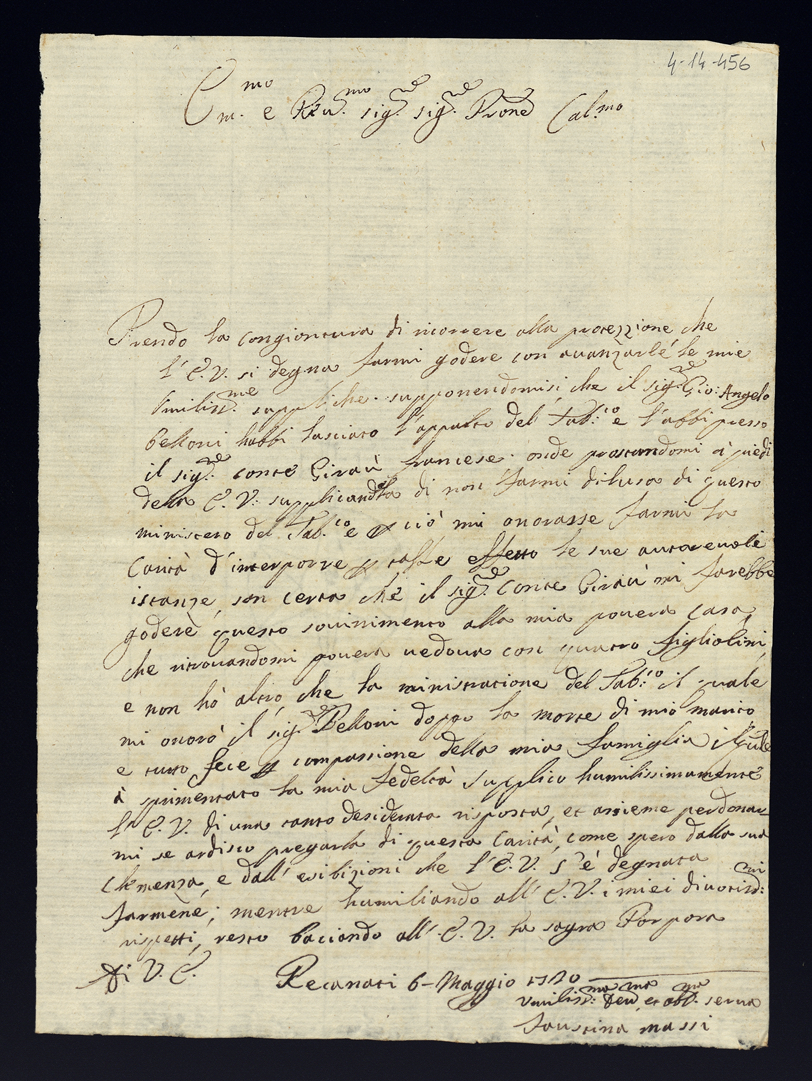 4-14-456
Em.mo e Reu.mo sig.re sig.re Prone Col.mo
Prendo la congiontura di ricorrere alla protezzione che
l'E.V. si degna farmi godere con auanzarle le mie
Vmilis.me suppliche. supponendomisi che il sig.re Gio: Angelo
Belloni habbi lasciato l'appalto del Tab.co e l'abbi presso
il sig.re conte Giraù francese. onde prostandomi à piedi
della E.V. supplicandola di non farmi dilusa di questo
ministero del Tab.co e ciò mi onorasse farmi la
Carità d'interporre tale effetto le sue autoreuoli
istanze, son certa che il sig.re Conte Giraù mi farebbe
godere questo souinimento alla mia pouera casa,
che ritrouandomi pouera uedoua con quattro figliolini
e non hò altro, che la ministratione del Tab.co il quale
mi onorò il sig.re Belloni doppo la morte di mio marito
e tutto fece compassione della mia famiglia il quale
à sprimentato la mia fedeltà supplico humilissimamente
l'E.V. di una tanto desiderata risposta, et assieme perdonar
mi se ardisco pregarla di questa Carità, come spero dalla sua
Clemenza, e dall'esibizioni che l'E.V. s'è degnata
farmene; mentre humiliando all'E.V. i miei diuotiss.mi
rispetti, resto baciando all'E.V. la sagra Porpora
Di V.E. Recanati 6 Maggio
Vmilis.ma deu.ma et obl.ma serua
Faustina Massi